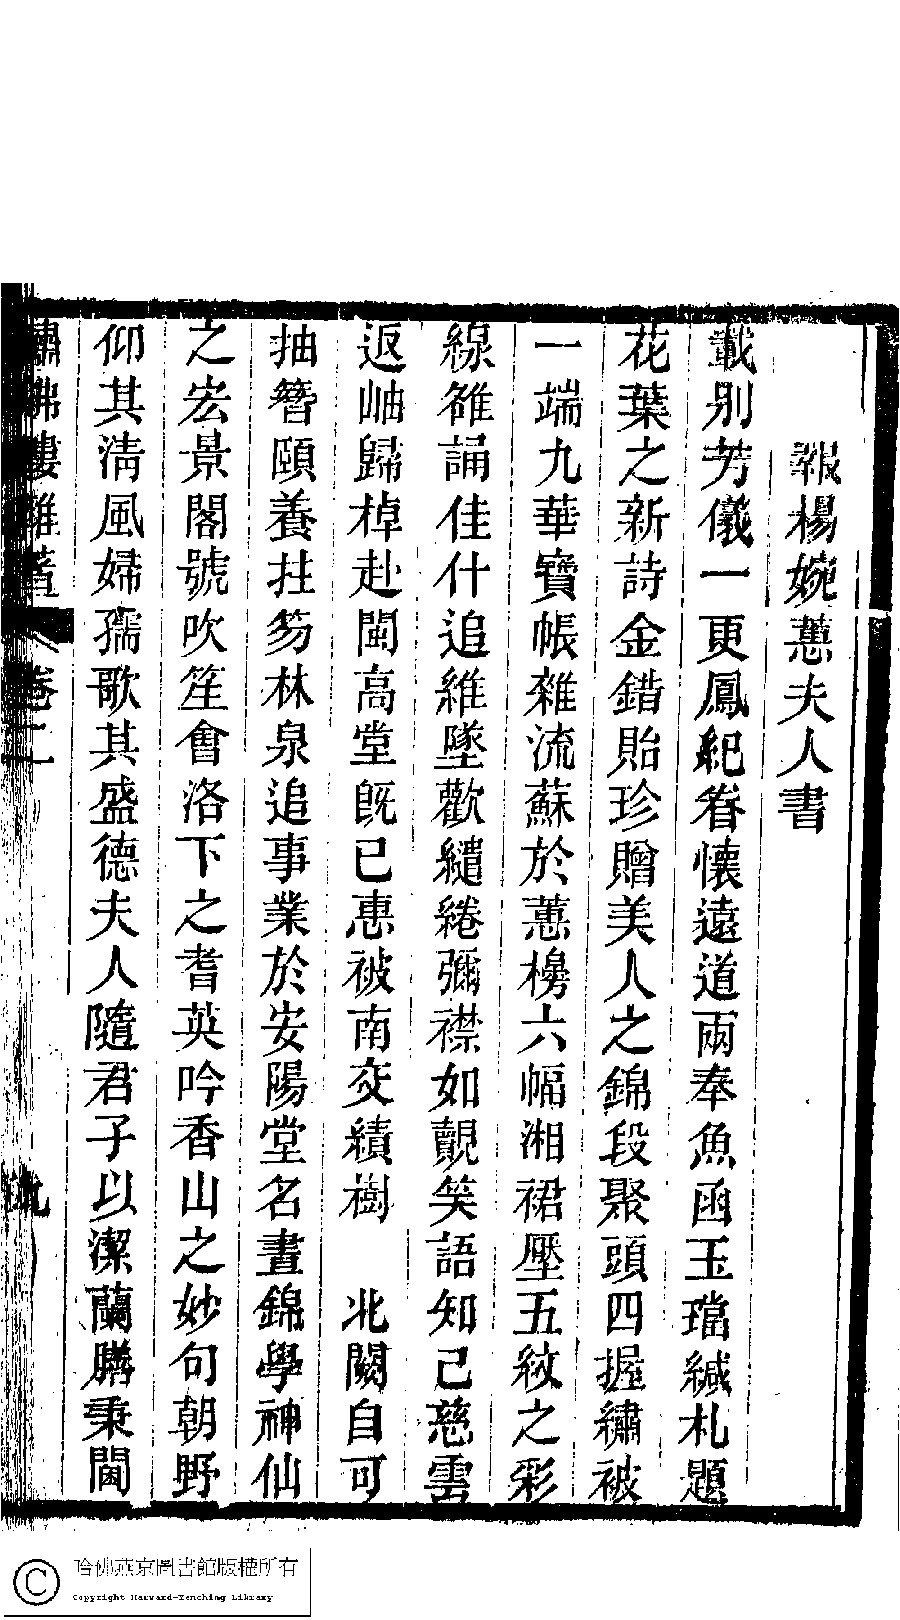 報楊婉蕙夫人書
載別芳儀一更鳳紀眷懷遠道兩奉魚函玉璫緘札題
花葉之新詩金錯貽珍贈美人之錦段聚頭四握繡被
一端九華寶帳雜流蘇於蕙櫋六幅湘裙壓五紋之彩
線雒誦佳什追維墜歡繾綣彌襟如覿笑語知己慈雲
返岫歸棹赴閩高堂旣已惠被南交績樹　北闕自可
抽簪頤養拄笏林泉追事業於安陽堂名晝錦學神仙
之宏景閣號吹笙會洛下之耆英吟香山之妙句朝野
仰其淸風婦孺歌其盛德夫人隨君子以潔蘭膳秉閫
樓雜著 卷二
哈佛燕京圖書館版權所有
Copyright Harvard-Yenching Library